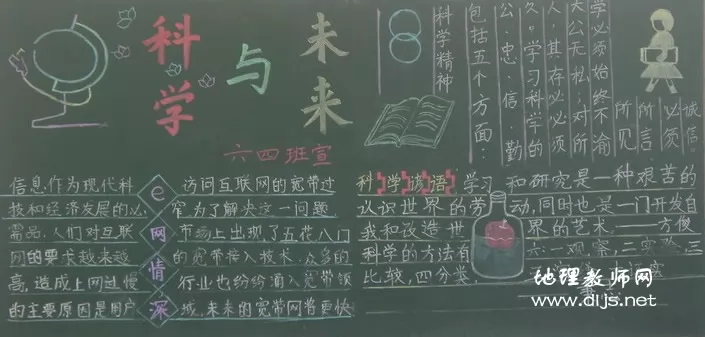 科学
与
未来
六四班宣
科学精神
包括五个方面:
公·忠·信·勤
久。学习科学的
人,其存必必须
大公无私;对所
学必须始终不渝
所见
所言
必须
诚信
信息作为现代科
技和经济发展的必
需品,人们对互联
网的要求越来越
高,造成上网过慢
的主要原因是用户
e网情深
访问互联网的宽带过
窄,为了解决这一问题
市场上出现了五花八门
的宽带接入技术,众多的
行业也纷纷涌入宽带领
域,未来的宽带网将更快
科学谚语 学习和研究是一种艰苦的
认识世界的劳动,同时也是一门开发自
我和改造世界的艺术——方俊
科学的方法有六:一观察,二实验,三
比较,四分类,
地理教师网
www.dljs.net